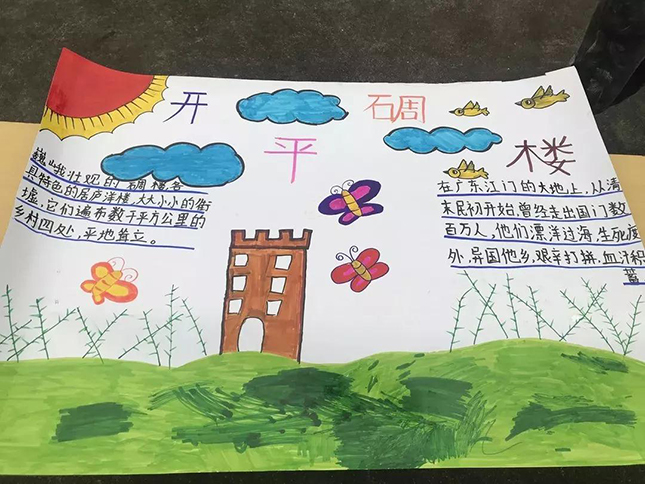 开平碉楼
巍峨壮观的碉楼,各
具特色的居庐洋楼,大大小小的街
墟,它们遍布数千平方公里的
乡村四处,平地耸立。
在广东江门的大地上,从清
末民初开始,曾经走出国门数
百万人,他们漂洋过海,生死度
外,异国他乡,艰辛打拼,血汗积
蓄